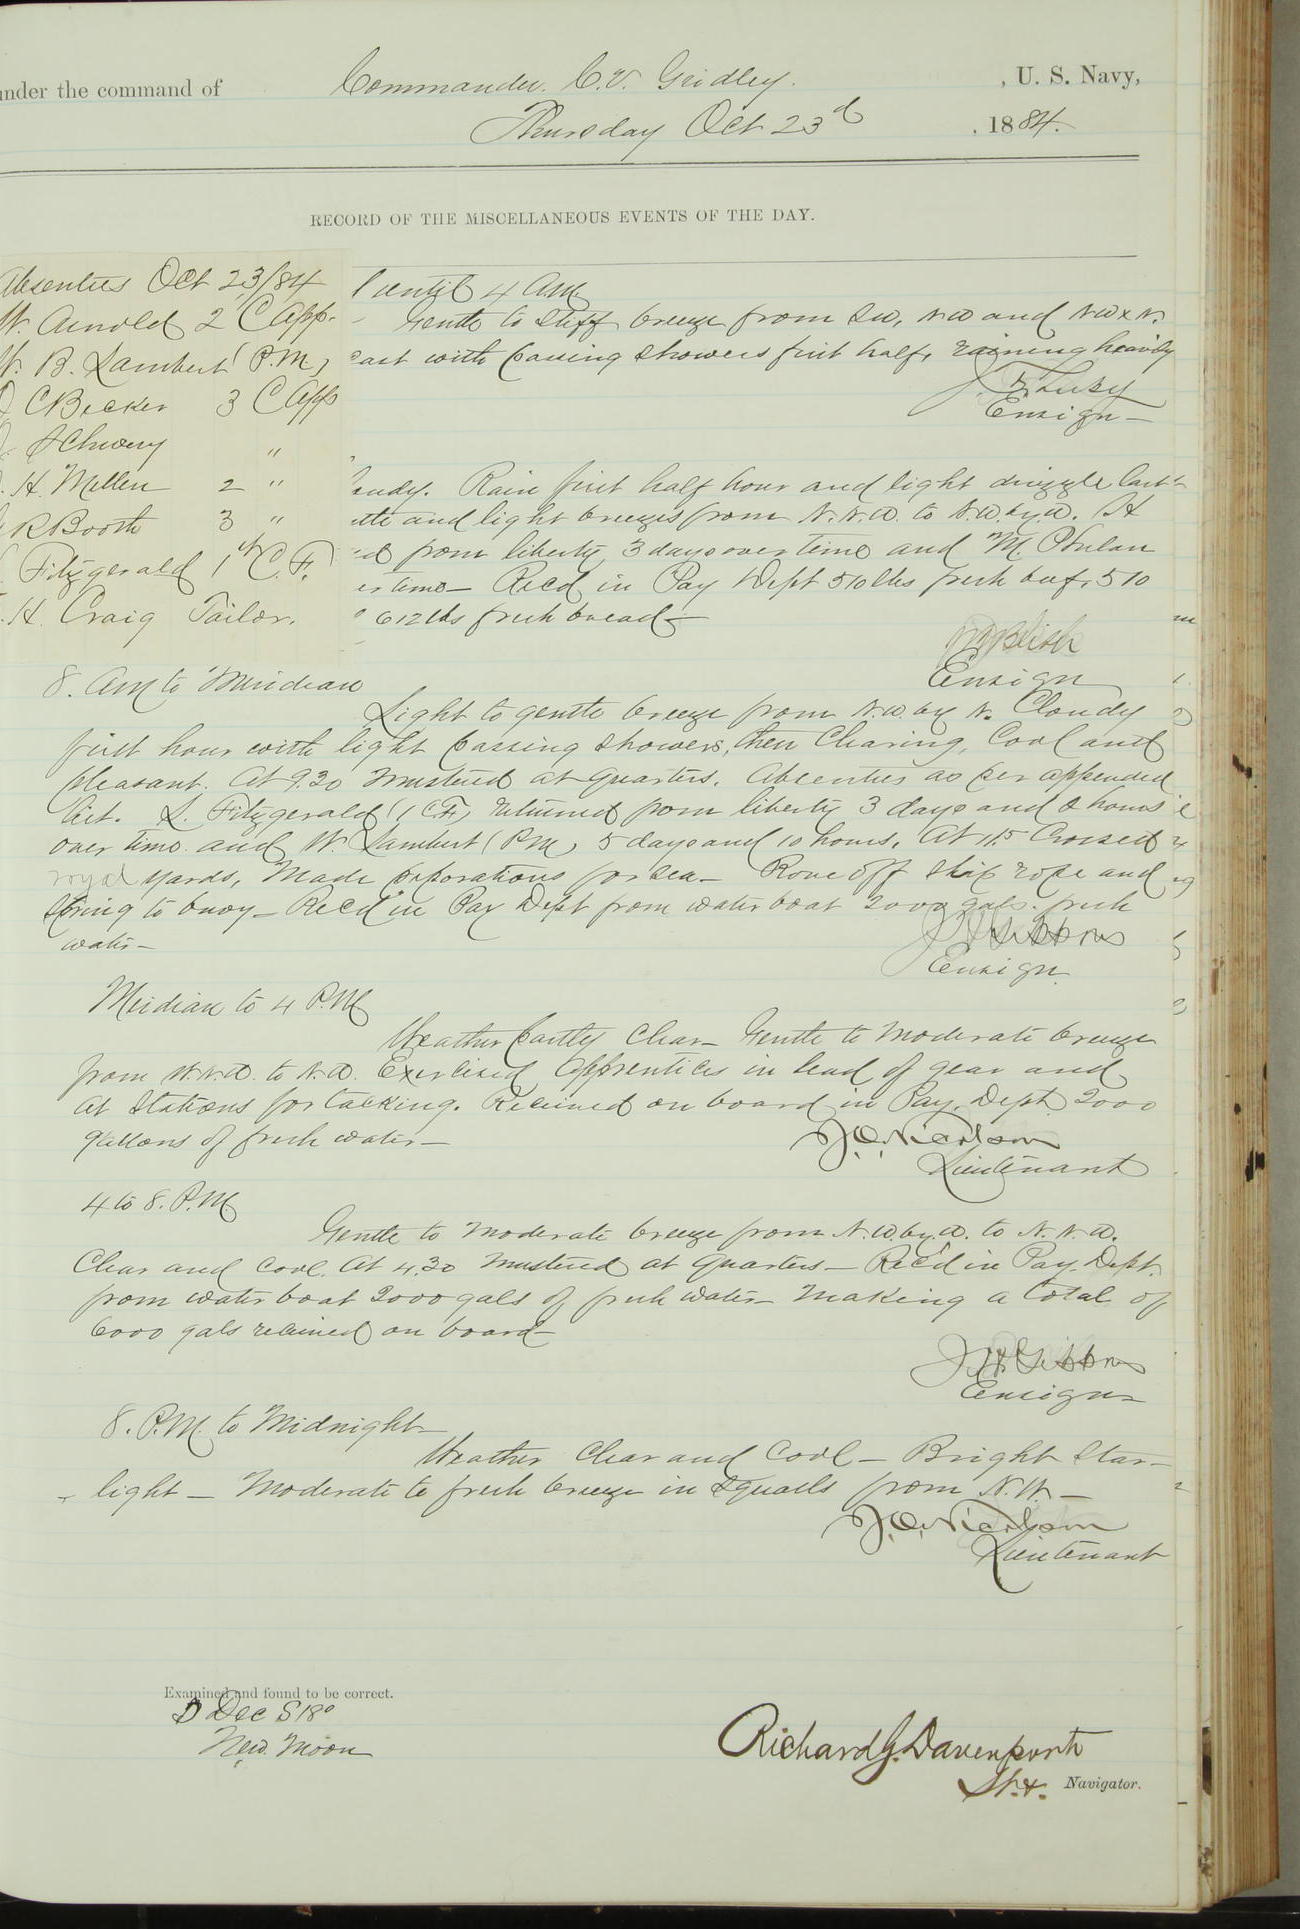 under the command of Commander. C. V. Gridley. , U. S. Navy,
Thursday Oct 23d , 1884.
RECORD OF THE MISCELLANEOUS EVENTS OF THE DAY.
Absentees Oct 23/84
W. Arnold 2 C App.
W. B. Lambert (P.M)
C Becker 3 C App
"
H. Mellen 2 "
R Booth 3 "
Fitzgerald 1 C. F.
H. Craig Tailor.
until 4 AM
Gentle to Stiff breeze from SW, NW and NWxN.
cast with passing showers first half, raining heavily
Ensign
Rain first half hour and light drizzle last
and light breezes from N.N.W. to N.W.by.W. H
from liberty 3 days over time and M. Phelan
er time Rec'd in Pay Dept 510 lbs fresh beef, 510
612 lbs fresh bread
Ensign
8. AM to Meridian
Light to gentle breeze from N.W. by N. Cloudy
first hour with light passing showers, then Clearing, Cool and
pleasant. At 9.30 mustered at quarters. Absentees as per appended
list. L. Fitzgerald (1 CF) returned from liberty 3 days and 2 hours
over time and W. Lambert (PM) 5 days and 10 hours. At 11.5 Crossed
royal yards, Made preparations for sea Rove off slip rope and
spring to buoy Rec'd in Pay Dept from water boat 2000 gals. fresh
water
J H Gibbons
Ensign
Meridian to 4 P.M
Weather partly Clear Gentle to Moderate breeze
from W.N.W. to N.W. Exercised Apprentices in lead of gear and
at Stations for tacking. Received on board in Pay. Dept. 2000
gallons of fresh water
J.O. Nicholson
Lieutenant
4 to 8. P.M.
Gentle to moderate breeze from N.W.by.W. to N.N.W.
Clear and cool. At 4.30 mustered at quarters Rec'd in Pay. Dept.
from water boat 2000 gals of fresh water Making a total of
6000 gals received on board
J H Gibbons
Ensign
8. P.M. to Midnight
Weather Clear and Cool Bright Star-
light Moderate to fresh breeze in squalls from N.W.
J.O. Nicholson
Lieutenant
Examined and found to be correct.
Dec S 18°
New Moon
Richard G. Davenport
Lt. Navigator.